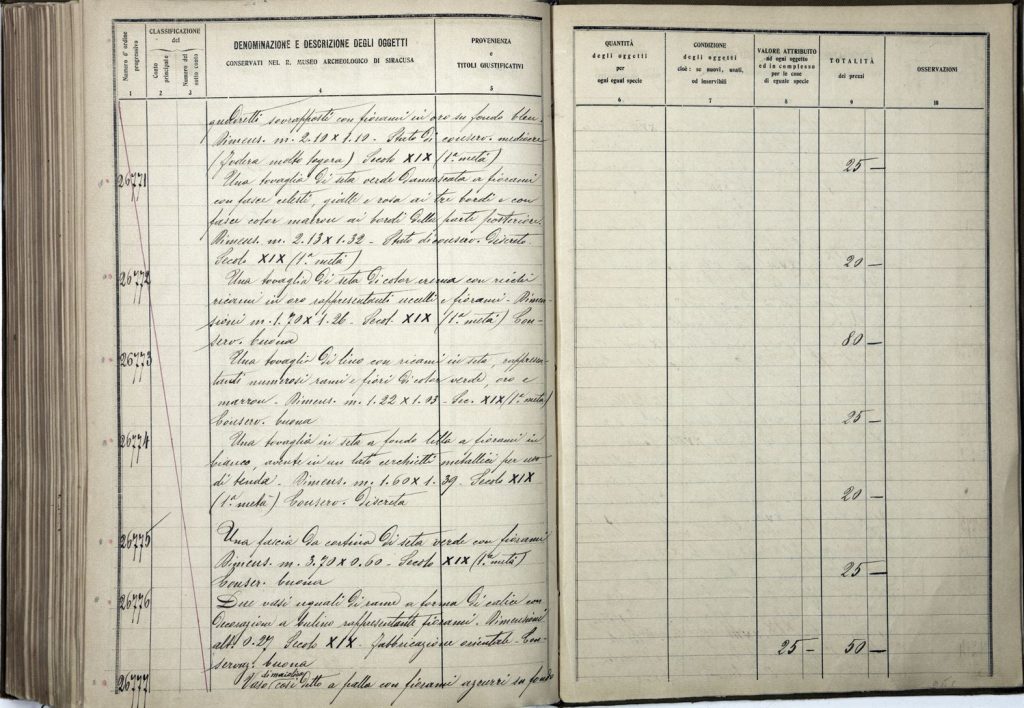 Numero d'ordine progressivo
CLASSIFICAZIONE
del
Conto principale
Numero del sotto conto
DENOMINAZIONE E DESCRIZIONE DEGLI OGGETTI
CONSERVATI NEL R. MUSEO ARCHEOLOGICO DI SIRACUSA
PROVENIENZA
e
TITOLI GIUSTIFICATIVI
QUANTITÀ
degli oggetti
per
ogni eguai specie
CONDIZIONE
degli oggetti
cioè: se nuovi, usati,
od inservibili
VALORE ATTRIBUITO
ad ogni oggetto
ed in complesso
per le cose
di eguale specie
TOTALITÀ
dei prezzi
OSSERVAZIONI
1 2 3 4 5 6 7 8 9 10
quadretti sovrapposti con fiorami in oro su fondo bleu.
Dimens. m. 2.10 x 1.10. Stato di conserv. mediocre
(fodera molto logora) Secolo XIX (1ª metà) 25 —
26771 Una tovaglia di seta verde damascata a fiorami
con fasce celesti, gialle e rosa ai tre bordi e con
fasce color marron ai bordi della parte posteriore.
Dimens. m. 2.13 x 1.32 - Stato di conserv. discreto.
Secolo XIX (1ª metà) 20 —
26772 Una tovaglia di seta di color crema con ricchi
ricami in oro rappresentanti uccelli e fiorami - Dimen-
sioni m. 1.70 x 1.26 - Secol. XIX (1ª metà) Con-
serv. buona 80 —
26773 Una tovaglia di lino con ricami in seta, rappresen-
tanti numerosi rami e fiori di color verde, oro e
marron. Dimens. m. 1.22 x 1.03 - Sec. XIX (1ª metà)
Conserv. buona 25 —
26774 Una tovaglia in seta a fondo lilla a fiorami in
bianco, avente in un lato cerchietti metallici per uso
di tenda - Dimens. m. 1.60 x 1.39 - Secolo XIX
(1ª metà) Conserv. Discreta 20 —
26775 Una fascia da cortina di seta verde con fiorami
Dimens. m. 3.70 x 0.60 - Secolo XIX (1ª metà)
Conser. buona 25 —
26776 Due vasi uguali di rame a forma di calice con
decorazione a bulino rappresentante fiorami. Dimensioni
alt. 0.27 Secolo XIX. fabbricazione orientale - Con-
servaz. buona 25 — 50 —
26777 Vaso di maiolica così detto a palla con fiorami azzurri su fondo